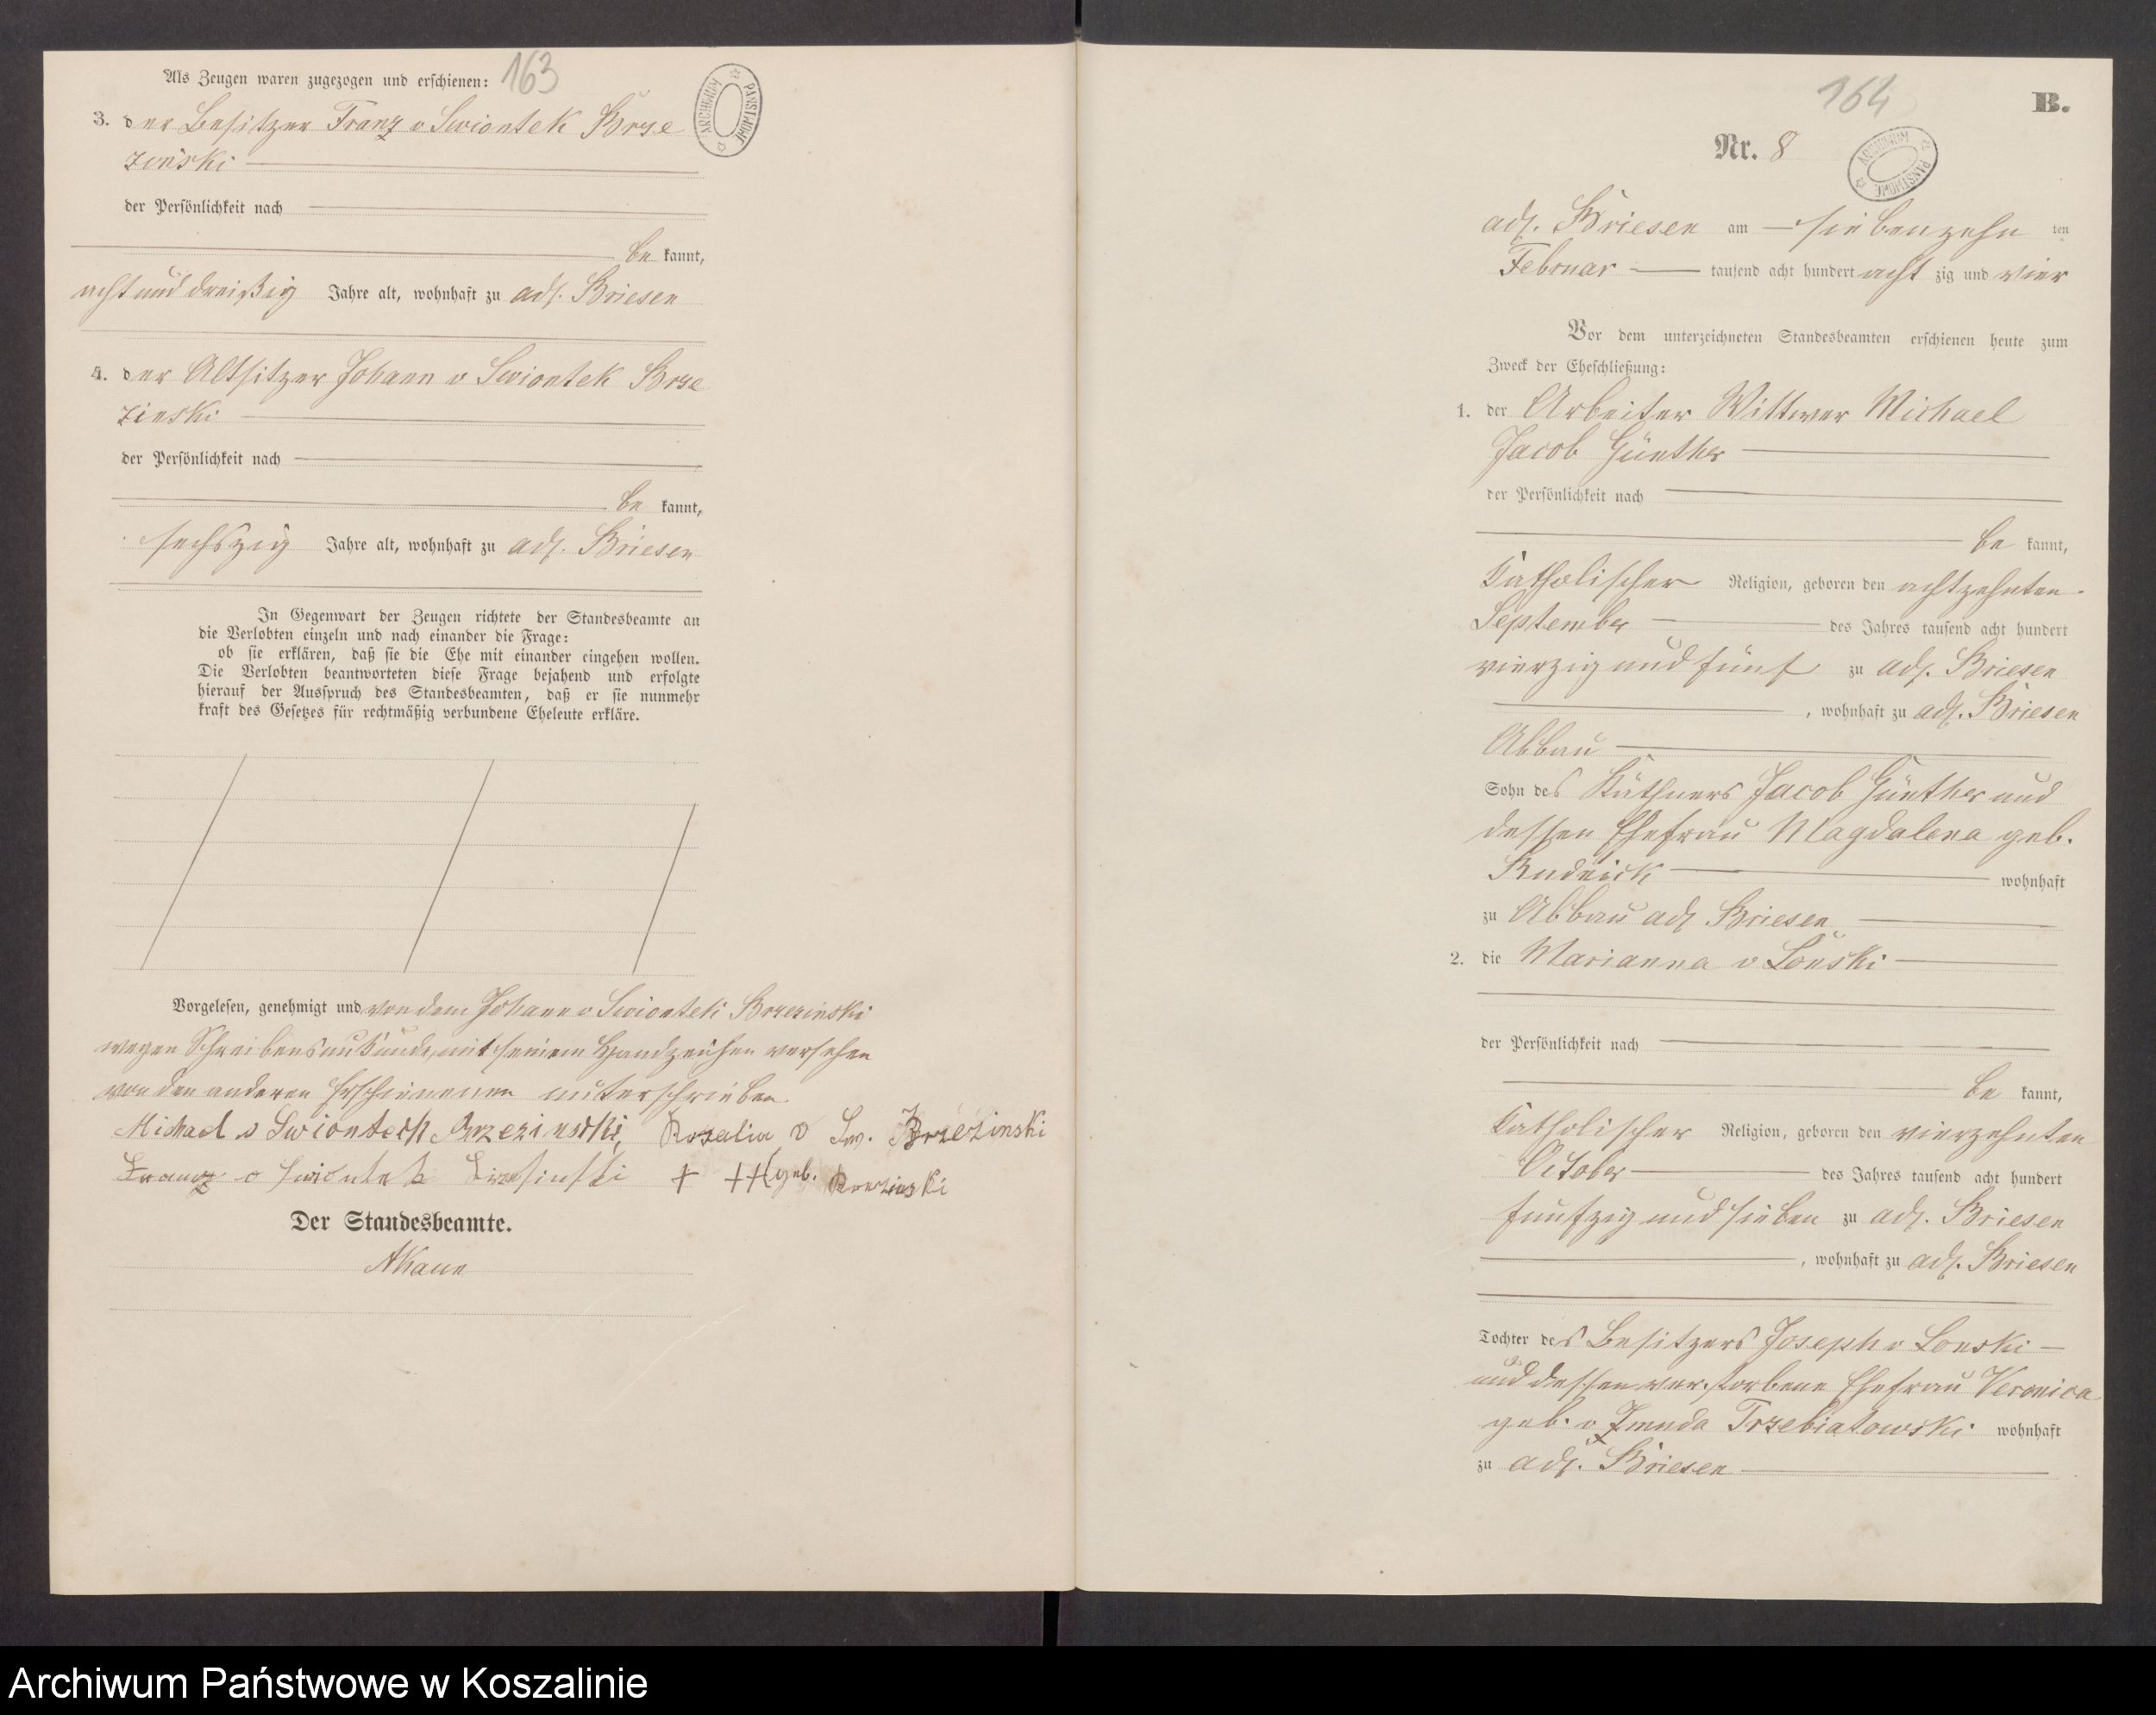 Als Zeugen waren zugezogen und erschienen:
163
ARCHIWUM PAŃSTWOWE
3. der Besitzer Franz v Swiontek Brze
zinski
der Persönlichkeit nach
be kannt,
acht und dreißig Jahre alt, wohnhaft zu adl. Briesen
4. der Altsitzer Johann v Swiontek Brze
zinski
der Persönlichkeit nach
be kannt,
sechszig Jahre alt, wohnhaft zu adl. Briesen
In Gegenwart der Zeugen richtete der Standesbeamte an
die Verlobten einzeln und nach einander die Frage:
ob sie erklären, daß sie die Ehe mit einander eingehen wollen.
Die Verlobten beantworteten diese Frage bejahend und erfolgte
hierauf der Ausspruch des Standesbeamten, daß er sie nunmehr
kraft des Gesetzes für rechtmäßig verbundene Eheleute erkläre.
Vorgelesen, genehmigt und von dem Johann v Swiontek Brzezinski
wegen Schreibensunkunde, mit seinem Handzeichen versehen
von den anderen Erschienenen unterschrieben
Michael v Swionteck Brzezinski, Rozalia v Sw. Brzezinski
Franz v Swiontek Brzesinski + +++ geb. Brzezinski
Der Standesbeamte.
164
B.
Nr. 8
ARCHIWUM PAŃSTWOWE
adl. Briesen am siebenzehn ten
Februar tausend acht hundert acht zig und vier
Vor dem unterzeichneten Standesbeamten erschienen heute zum
Zweck der Eheschließung:
1. der Arbeiter Wittwer Michael
Jacob Günther
der Persönlichkeit nach
be kannt,
Katholischer Religion, geboren den achtzehnten
September des Jahres tausend acht hundert
vierzig und fünf zu adl. Briesen
, wohnhaft zu adl. Briesen
Abbau
Sohn des Käthners Jacob Günther und
dessen Ehefrau Magdalena geb.
Rudnick wohnhaft
zu Abbau adl Briesen
2. die Marianna v Lonski
der Persönlichkeit nach
be kannt,
Katholischer Religion, geboren den vierzehnten
October des Jahres tausend acht hundert
funfzig und sieben zu adl. Briesen
, wohnhaft zu adl. Briesen
Tochter des Besitzers Joseph v Lonski
und dessen verstorbene Ehefrau Veronica
geb. v Zmuda Trzebiatowski wohnhaft
zu adl. Briesen
Archiwum Państwowe w Koszalinie